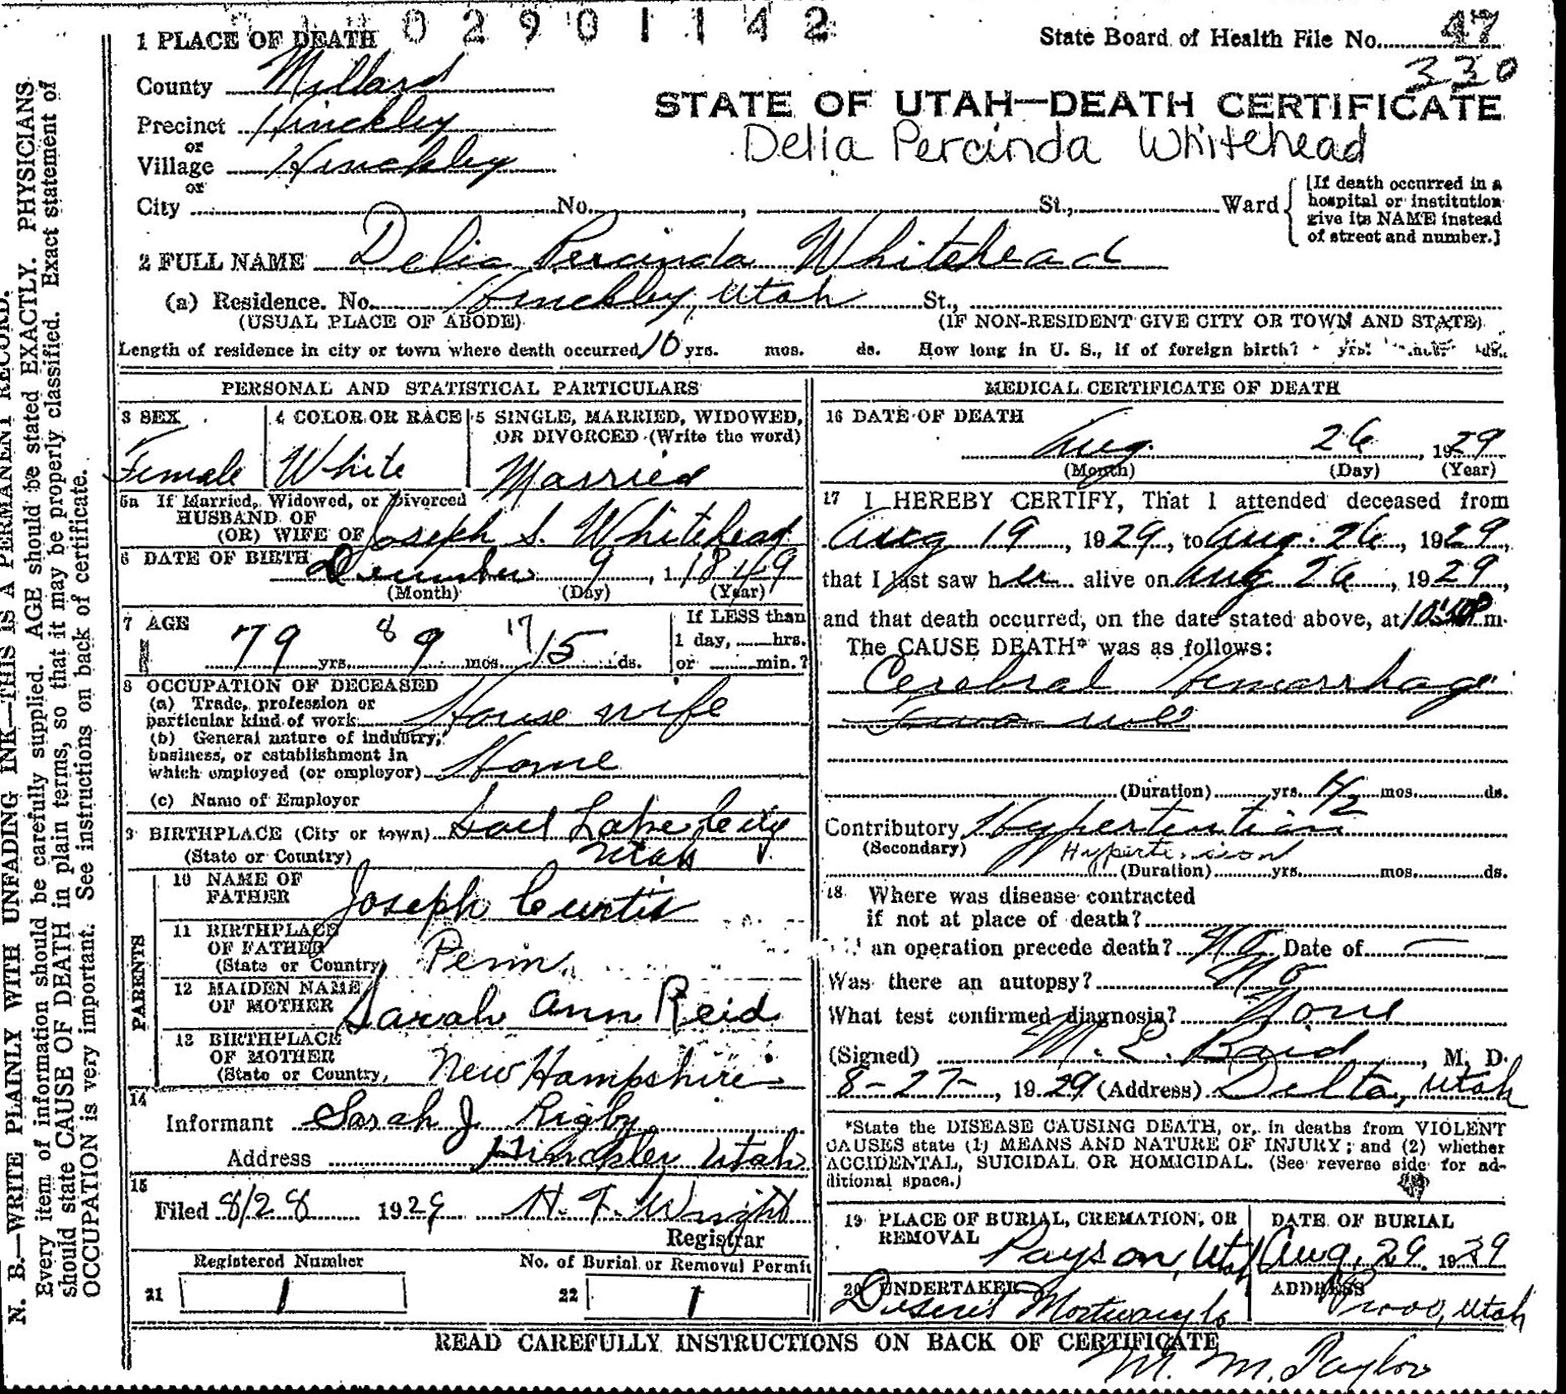 02901142
1 PLACE OF DEATH
State Board of Health File No. 47
330
County Millard
STATE OF UTAH—DEATH CERTIFICATE
Precinct Hinckley
or
Delia Percinda Whitehead
Village Hinckley
or
City No. , St., Ward
[If death occurred in a
hospital or institution
give its NAME instead
of street and number.]
2 FULL NAME Delia Percinda Whitehead
(a) Residence. No. Hinckley, Utah St.,
(USUAL PLACE OF ABODE) (IF NON-RESIDENT GIVE CITY OR TOWN AND STATE)
Length of residence in city or town where death occurred 10 yrs. mos. ds. How long in U. S., if of foreign birth? yrs. mos. ds.
PERSONAL AND STATISTICAL PARTICULARS
3 SEX
Female
4 COLOR OR RACE
White
5 SINGLE, MARRIED, WIDOWED,
OR DIVORCED (Write the word)
Married
5a If Married, Widowed, or Divorced
HUSBAND OF
(OR) WIFE OF Joseph S. Whitehead
6 DATE OF BIRTH December 9, 1849
(Month) (Day) (Year)
7 AGE
79 yrs. 8 9 mos. 17 15 ds.
If LESS than
1 day, hrs.
or min.?
8 OCCUPATION OF DECEASED
(a) Trade, profession or
particular kind of work House wife
(b) General nature of industry,
business, or establishment in
which employed (or employor) Home
(c) Name of Employer
9 BIRTHPLACE (City or town) Salt Lake City
(State or Country) Utah
PARENTS
10 NAME OF
FATHER Joseph Curtis
11 BIRTHPLACE
OF FATHER
(State or Country) Penn.
12 MAIDEN NAME
OF MOTHER Sarah Ann Reid
13 BIRTHPLACE
OF MOTHER
(State or Country, New Hampshire
14
Informant Sarah J. Rigby
Address Hinckley Utah
15
Filed 8/28 1929 H. F. Wright
Registrar
Registered Number
21 1
No. of Burial or Removal Permit
22 1
MEDICAL CERTIFICATE OF DEATH
16 DATE OF DEATH
Aug. 26, 1929
(Month) (Day) (Year)
17 I HEREBY CERTIFY, That I attended deceased from
Aug 19, 1929, to Aug. 26, 1929,
that I last saw her alive on Aug 26, 1929,
and that death occurred, on the date stated above, at m.
The CAUSE DEATH* was as follows:
Cerebral Hemorrhage
(Duration) yrs. 1/2 mos. ds.
Contributory Hypertention
(Secondary) Hypertension
(Duration) yrs. mos. ds.
18 Where was disease contracted
if not at place of death?
an operation precede death? No Date of —
Was there an autopsy? No
What test confirmed diagnosis? None
(Signed) M. E. Bird, M. D.
8-27-, 1929 (Address) Delta, Utah
*State the DISEASE CAUSING DEATH, or, in deaths from VIOLENT
CAUSES state (1) MEANS AND NATURE OF INJURY; and (2) whether
ACCIDENTAL, SUICIDAL OR HOMICIDAL. (See reverse side for ad-
ditional space.)
19 PLACE OF BURIAL, CREMATION, OR
REMOVAL Payson, Utah
DATE OF BURIAL
Aug. 29 1929
20 UNDERTAKER
Deseret Mortuary Co
ADDRESS
Provo, Utah
READ CAREFULLY INSTRUCTIONS ON BACK OF CERTIFICATE
M. M. Taylor
N. B.—WRITE PLAINLY WITH UNFADING INK—THIS IS A PERMANENT RECORD.
Every item of information should be carefully supplied. AGE should be stated EXACTLY. PHYSICIANS
should state CAUSE OF DEATH in plain terms, so that it may be properly classified. Exact statement of
OCCUPATION is very important. See instructions on back of certificate.